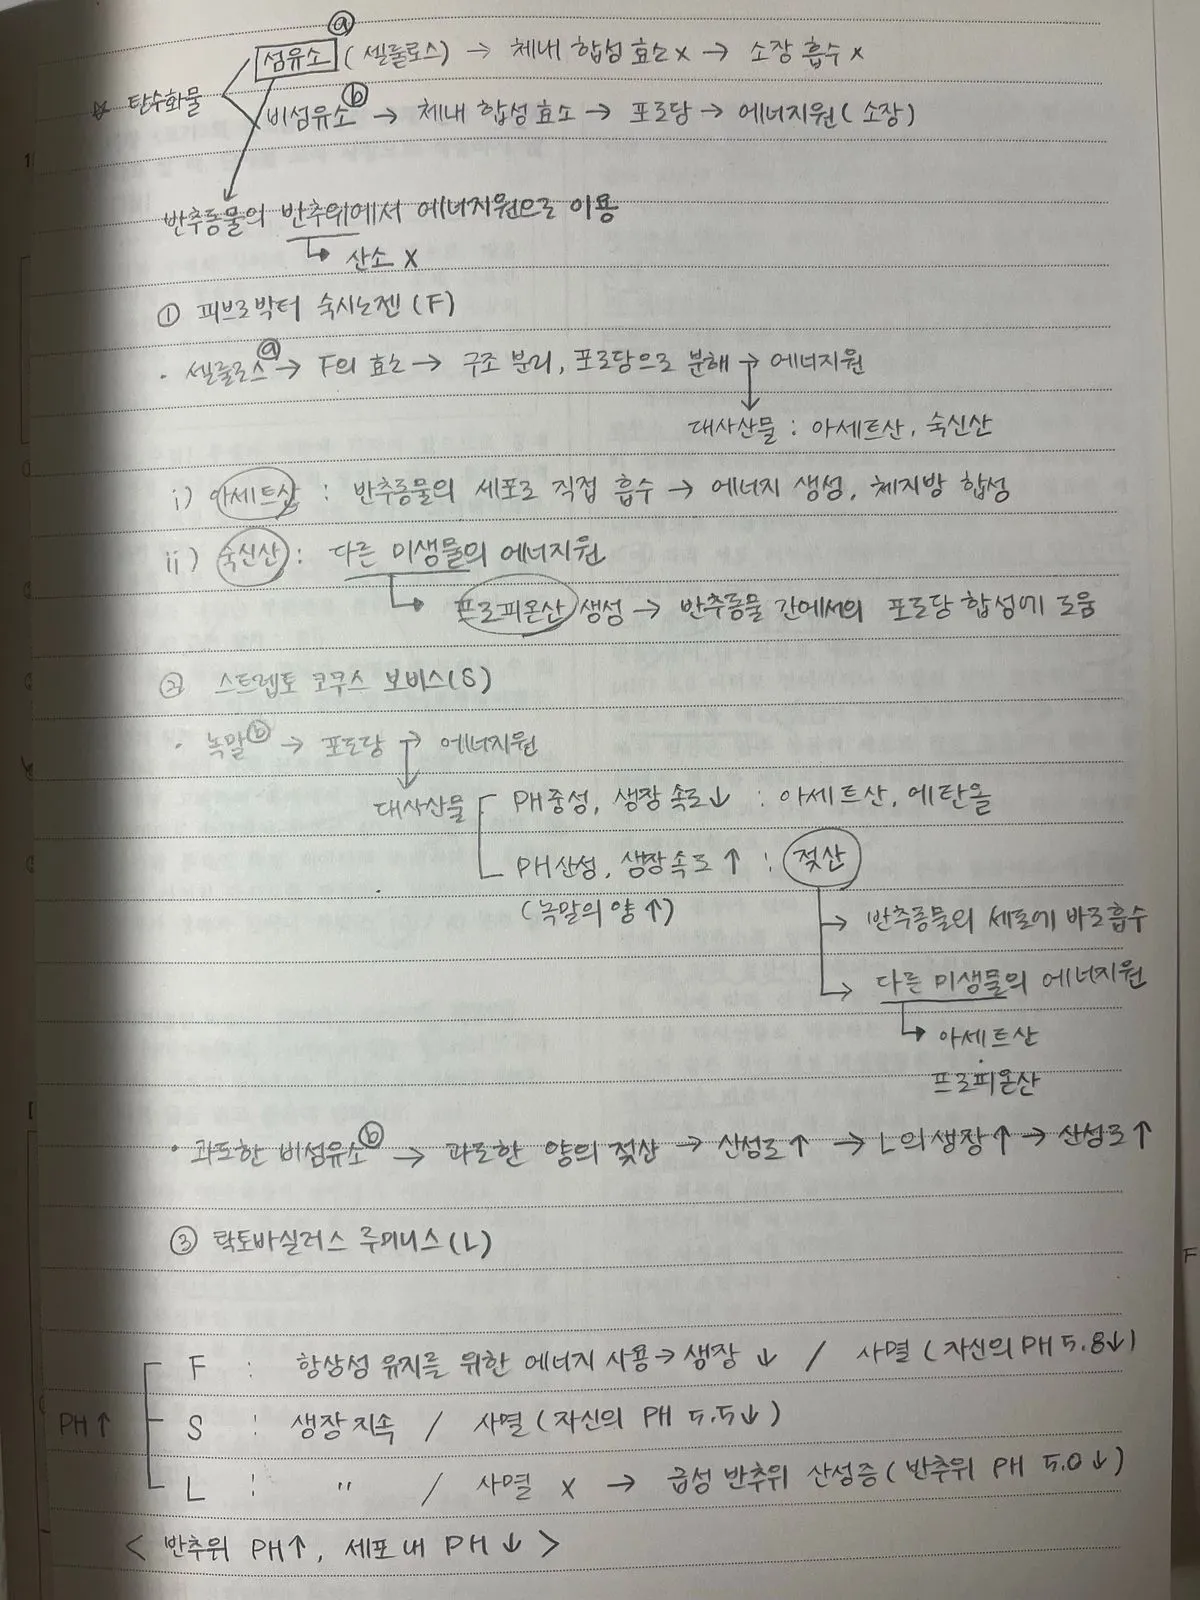 ⓐ
☆ 탄수화물
섬유소 (셀룰로스) → 체내 합성 효소 x → 소장 흡수 x
비섬유소 ⓑ → 체내 합성 효소 → 포도당 → 에너지원 (소장)
반추동물의 반추위에서 에너지원으로 이용
↳ 산소 X
① 피브로박터 숙시노젠 (F)
· 셀룰로스 ⓐ → F의 효소 → 구조 분리, 포도당으로 분해 → 에너지원
대사산물 : 아세트산, 숙신산
i) 아세트산 : 반추동물의 세포로 직접 흡수 → 에너지 생성, 체지방 합성
ii) 숙신산 : 다른 미생물의 에너지원
↳ 프로피온산 생성 → 반추동물 간에서의 포도당 합성에 도움
② 스트렙토 코쿠스 보비스(S)
· 녹말 ⓑ → 포도당 → 에너지원
대사산물
PH 중성, 생장 속도↓ : 아세트산, 에탄올
PH 산성, 생장 속도 ↑ : 젖산
(녹말의 양 ↑)
→ 반추동물의 세포에 바로 흡수
→ 다른 미생물의 에너지원
↳ 아세트산
프로피온산
· 과도한 비섬유소 ⓑ → 과도한 양의 젖산 → 산성도↑ → L의 생장↑ → 산성도↑
③ 락토바실러스 루미니스(L)
F : 항상성 유지를 위한 에너지 사용→ 생장 ↓ / 사멸 (자신의 PH 5.8↓)
PH ↑
S : 생장 지속 / 사멸 (자신의 PH 5.5↓)
L : 〃 / 사멸 x → 급성 반추위 산성증 (반추위 PH 5.0↓)
< 반추위 PH↑, 세포 내 PH ↓ >
F